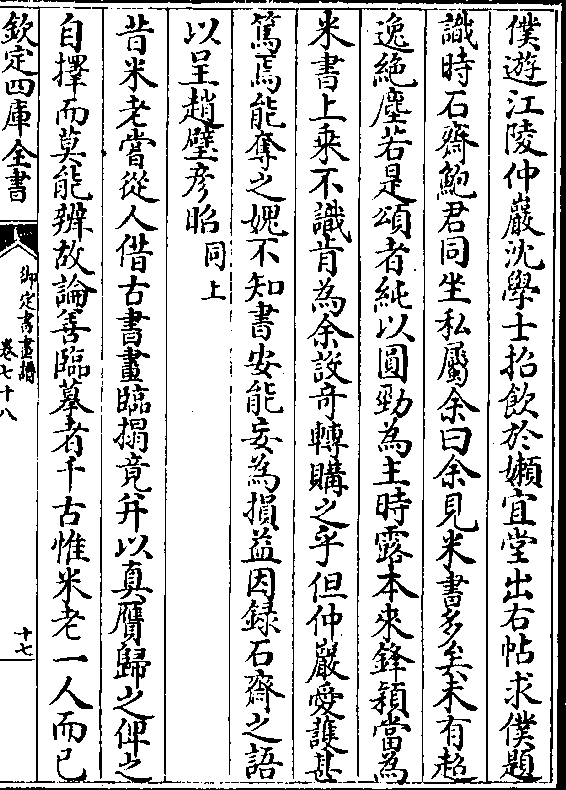 僕遊江陵仲巖沈學士招飲於嬾宜堂出右帖求僕題
識時石齋鮑君同坐私屬余曰余見米書多矣未有超
逸絶塵若是頌者純以圓勁為主時露本來鋒穎當為
米書上乘不識肯為余設竒轉購之乎但仲巖愛護甚
篤焉能奪之媿不知書安能妄為損益因録石齋之語
以呈趙璧彦昭同上
昔米老嘗從人借古書畫臨搨竟并以真贋歸之俾之
自擇而莫能辨故論善臨摹者千古惟米老一人而已
欽定四庫全書
御定書畫譜
卷七十八
十七